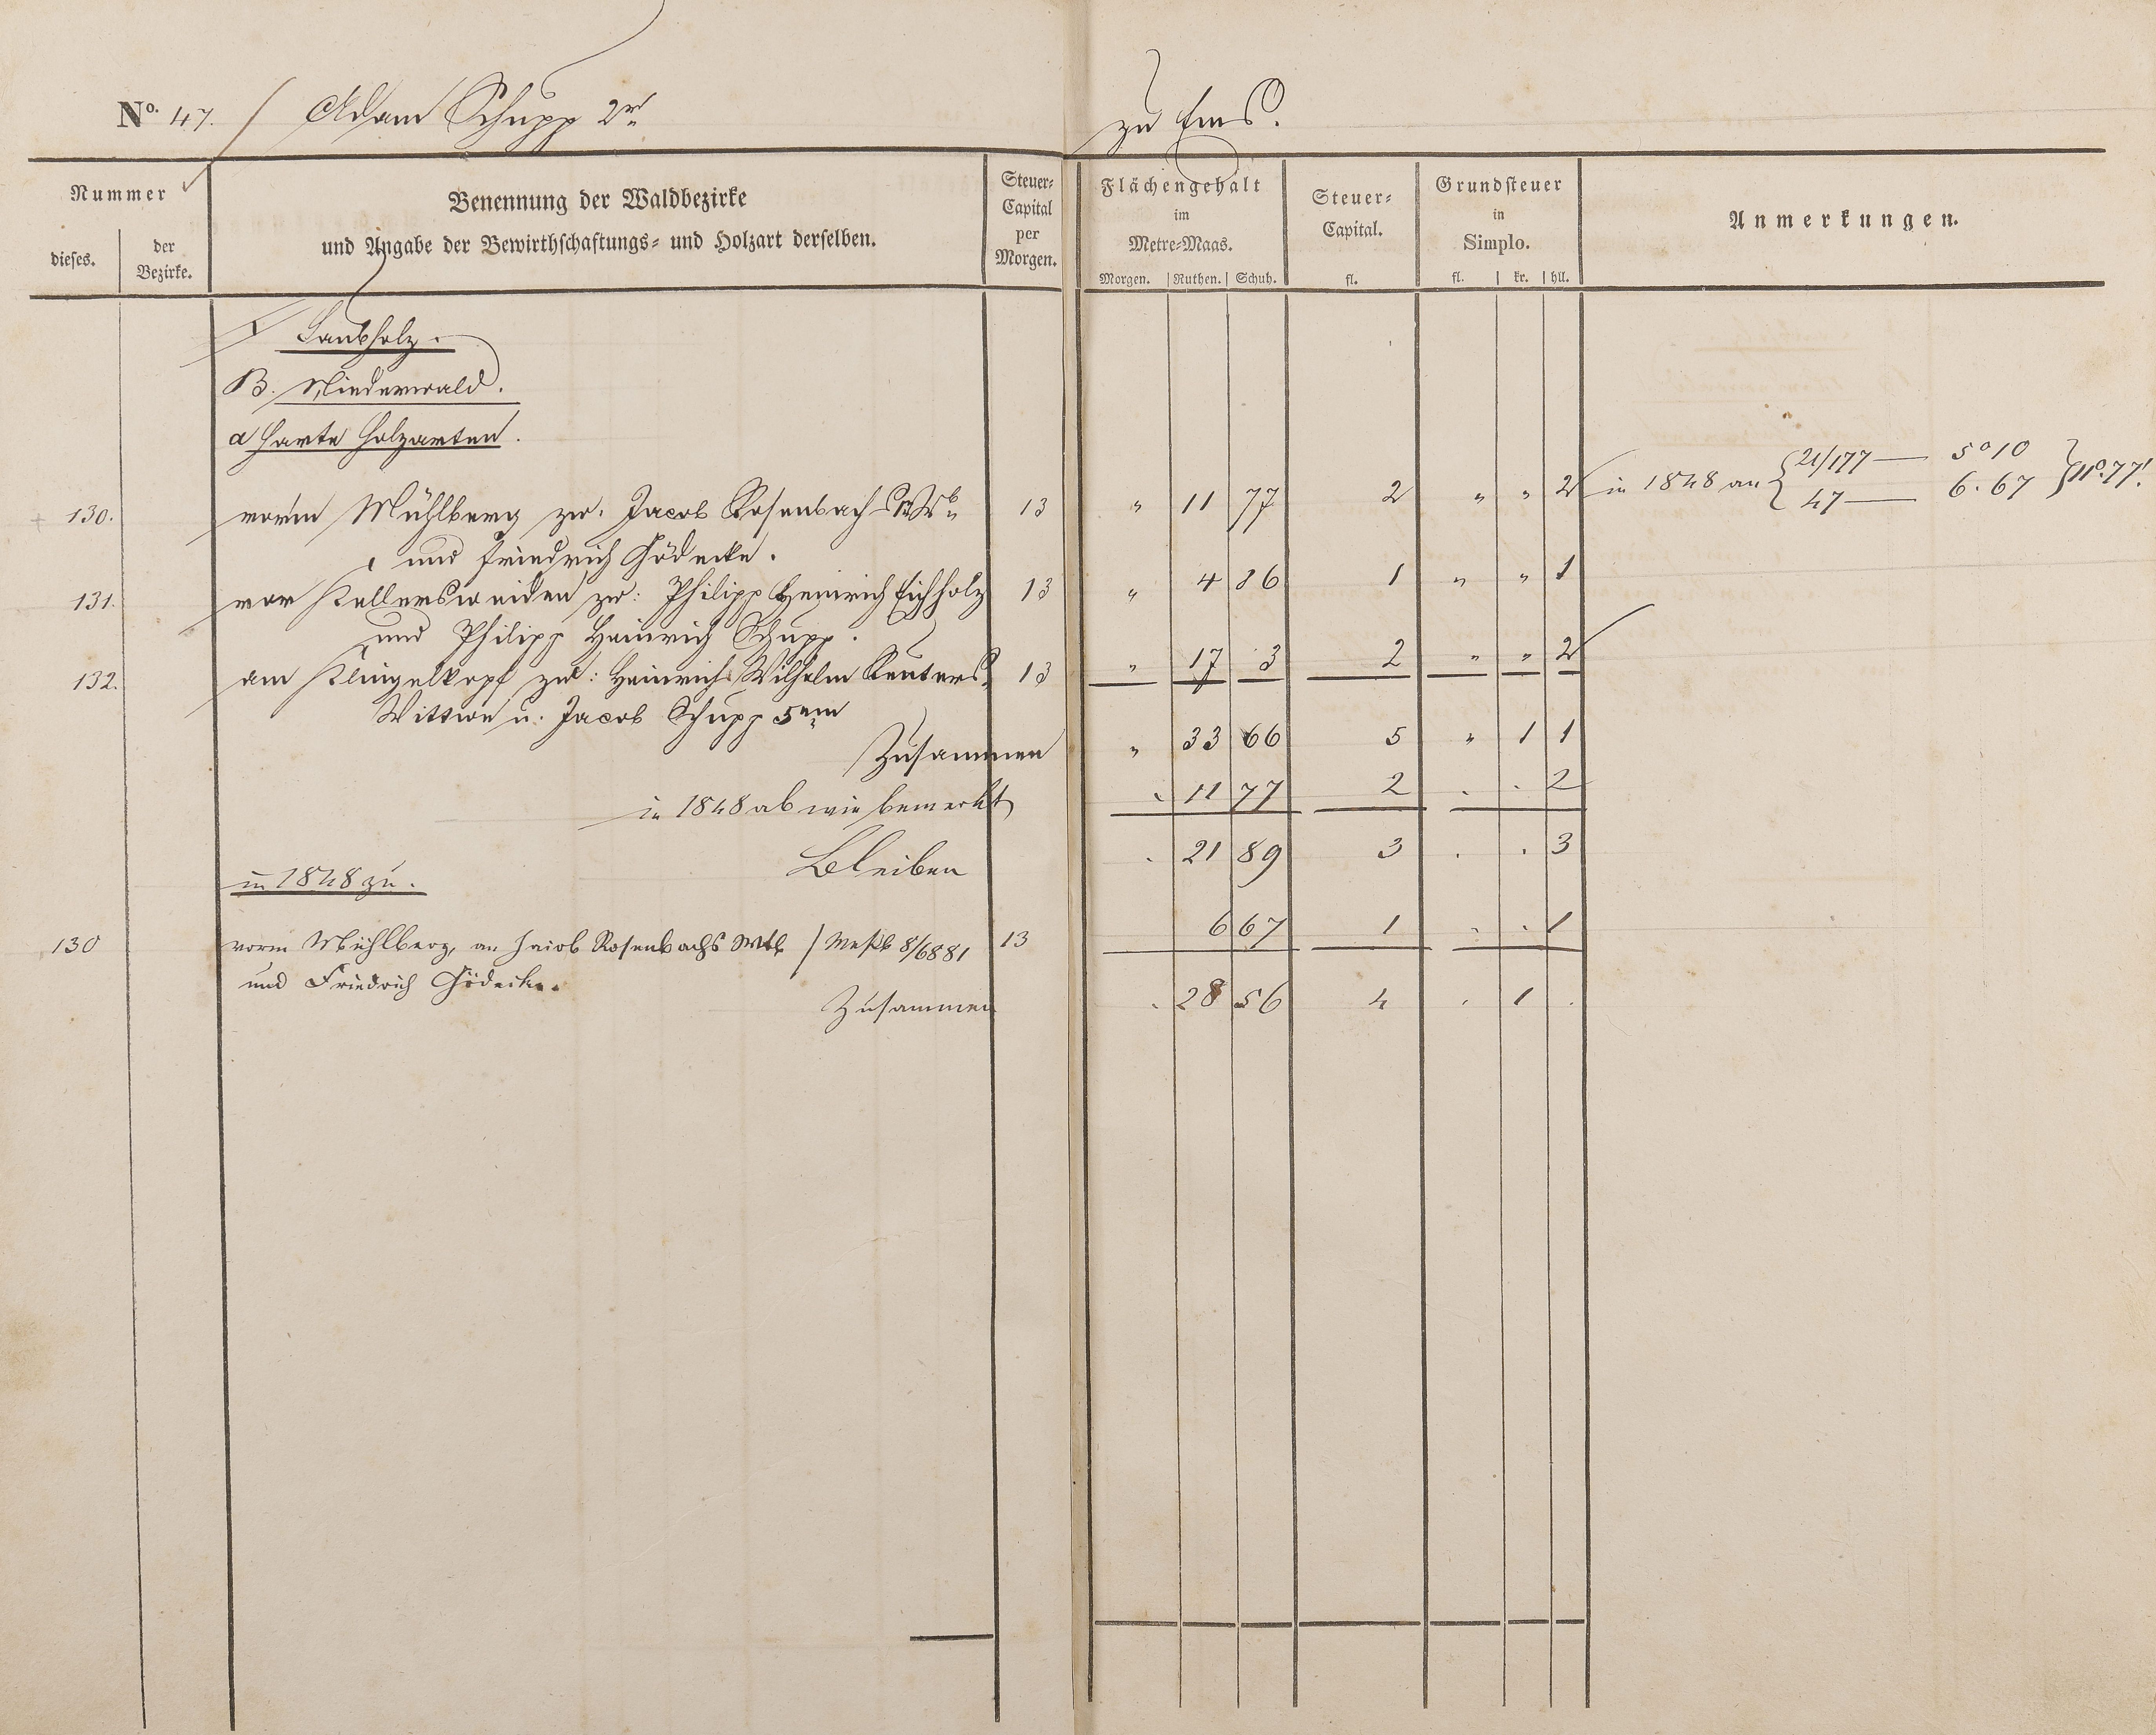 No. 47. Adam Schupp 2r zu Ems.
Nummer
dieses.
der Bezirke.
Benennung der Waldbezirke
und Angabe der Bewirthschaftungs- und Holzart derselben.
Steuer-
Capital
per
Morgen.
Flächengehalt
im
Metre-Maas.
Morgen. Ruthen. Schuh.
Steuer-
Capital.
fl.
Grundsteuer
in
Simplo.
fl. kr. hll.
Anmerkungen.
Laubholz.
B. Niederwald.
a harte Holzarten.
130. vorm Mühlberg zw. Jacob Rosenbachs 13 " 11 77 2 " " 2 in 1848 an { 21/177 — 5° 10
47 — 6. 67 } 11°.77'.
und Friedrich Gödecke.
131. vor Kellersweiden zw: Philipp Heinrich Eichholz 13 " 4 86 1 " " 1
und Philipp Heinrich Schupp.
132. am Klingelkopf zw: Heinrich Wilhelm Reuters 13 " 17 3 2 " " 2
Wittwe u. Jacob Schupp 5em
Zusammen " 33 66 5 " 1 1
in 1848 ab wie bemerkt . 11 77 2 . . 2
Bleiben . 21 89 3 . . 3
in 1848 zu.
130 vorm Mühlberg, an Jacob Rosenbachs Wtb / Messb 8/6881 13 6 67 1 . . 1
und Friedrich Gödecke.
Zusammen . 28 56 4 . 1 .